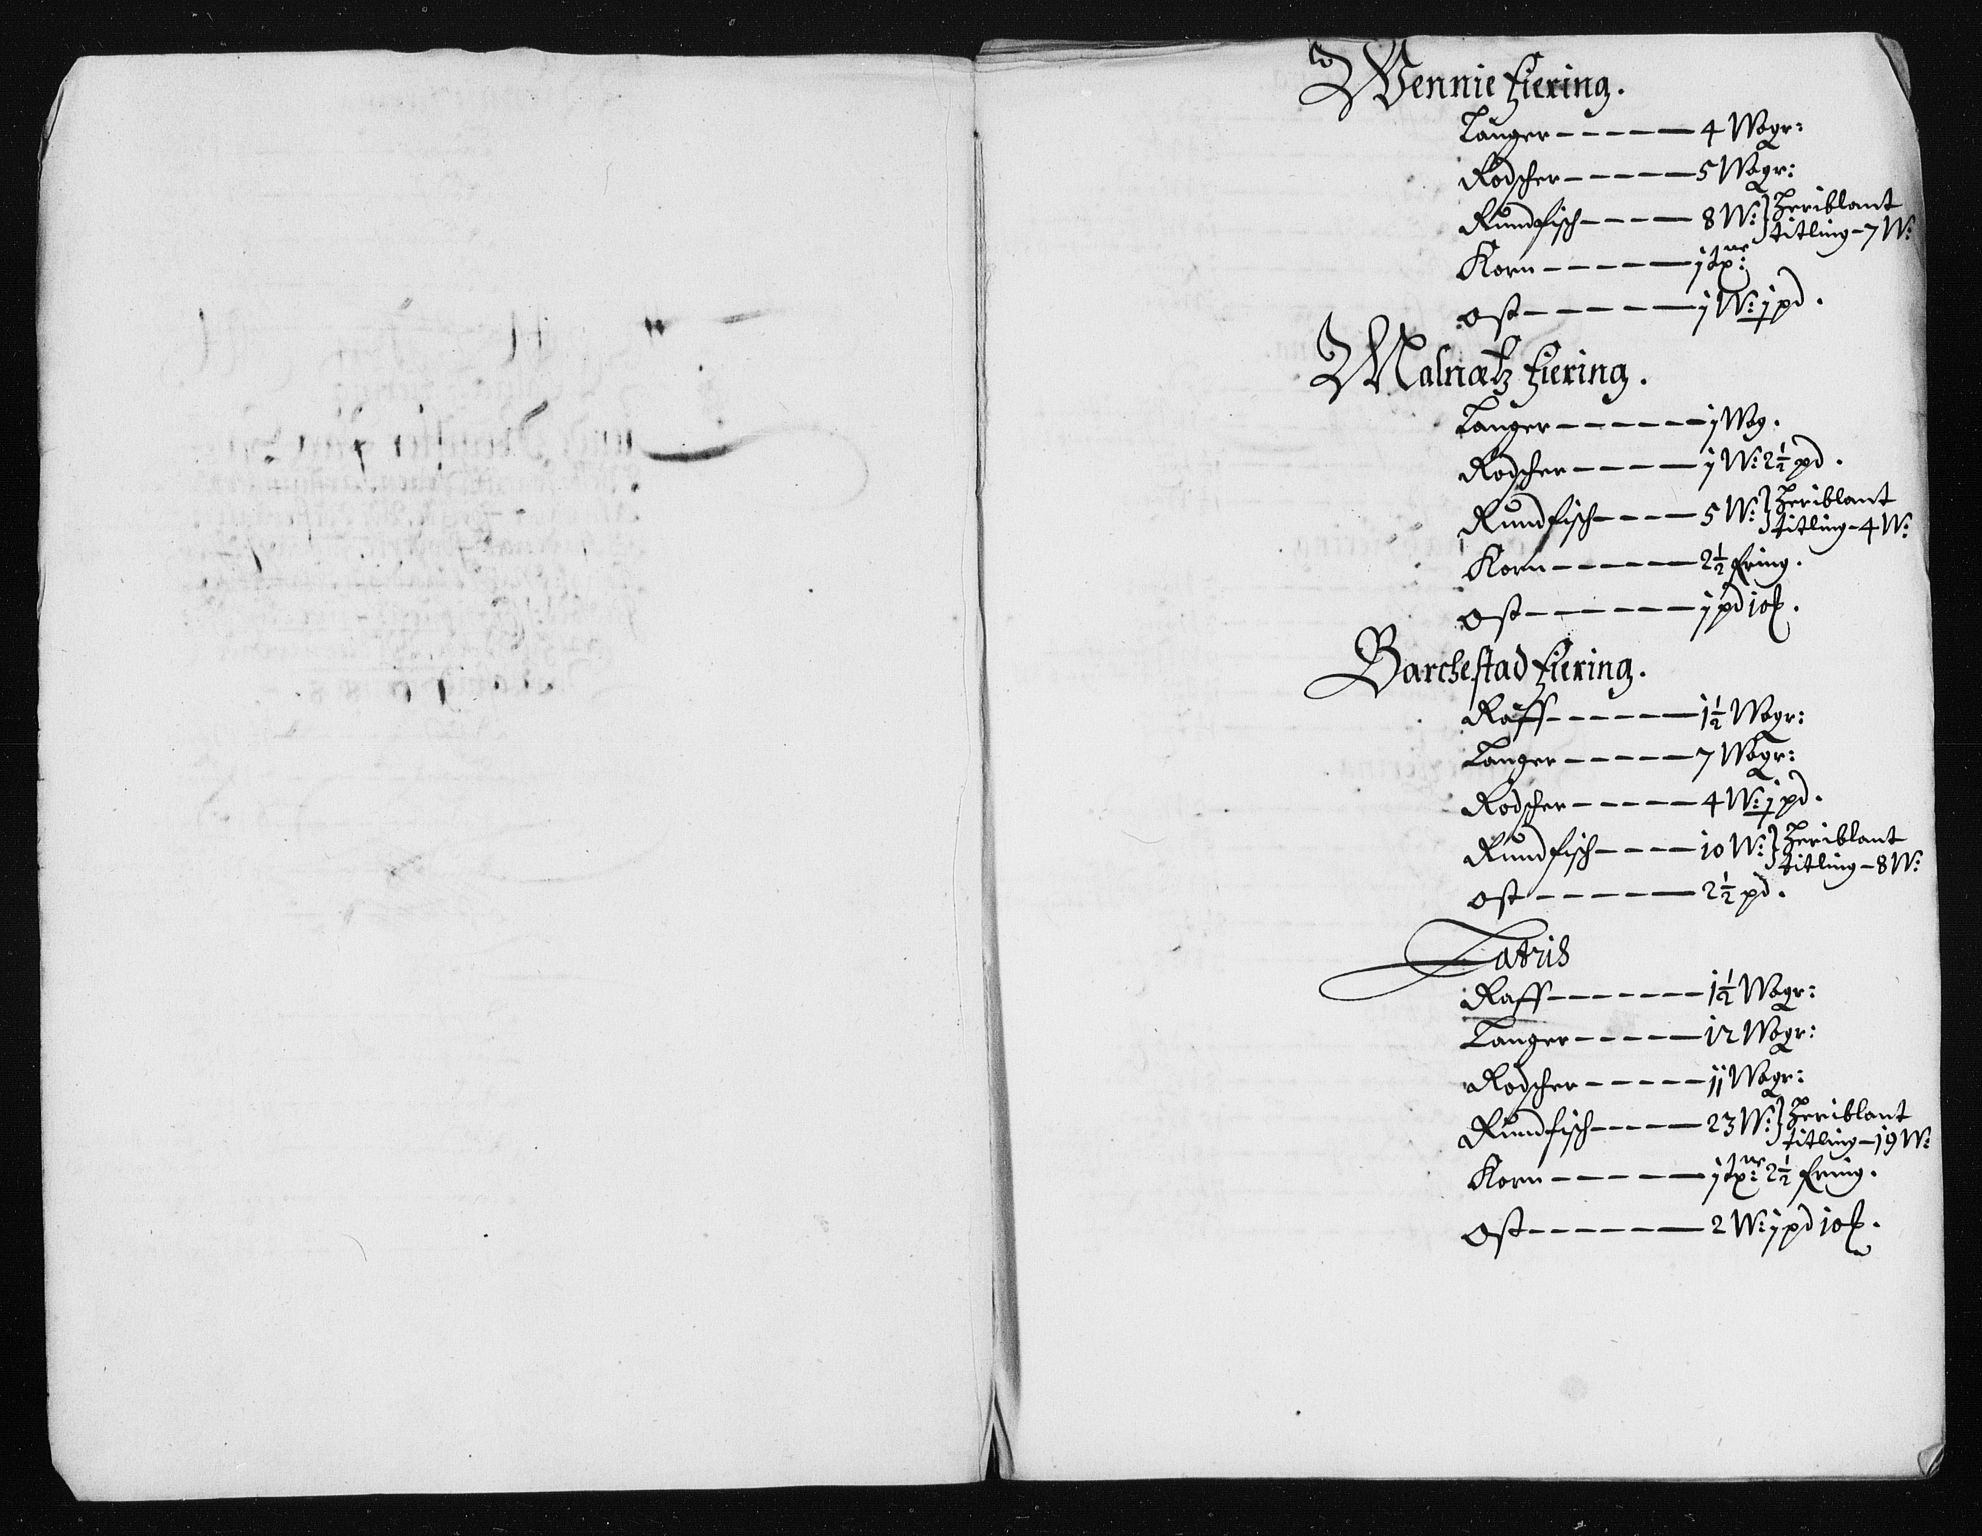 Wennie fiering.
Langer – – – – – 4 Wogr:
Rodscher – – – – – 5 Wogr:
Rundfisch – – – – 8 W: } heriblant
titling – 7 W:
Korn – – – – – j tne:
Ost – – – – – – j W: j pd.
Malnætz fiering.
Langer – – – – – – j Wog.
Rodscher – – – – – j W: 2½ pd.
Rundfisch – – – – 5 W: } heriblant
titling – 4 W:
Korn – – – – – – 2½ fring.
Ost – – – – – – j pd 10
Barchestad fiering.
Raff – – – – – – 1½ Wogr:
Langer – – – – – 7 Wogr:
Rodscher – – – – – 4 W: j pd.
Rundfisch – – – – 10 W: } heriblant
titling – 8 W:
Ost – – – – – – 2½ pd.
Latris
Raff – – – – – – – 1½ Wogr:
Langer – – – – – 12 Wogr:
Rodscher – – – – – 11 Wogr:
Rundfisch – – – – – 23 W: } heriblant
titling – 19 W:
Korn – – – – – – j tne: 2½ fring.
Ost – – – – – – – 2 W: j pd 10